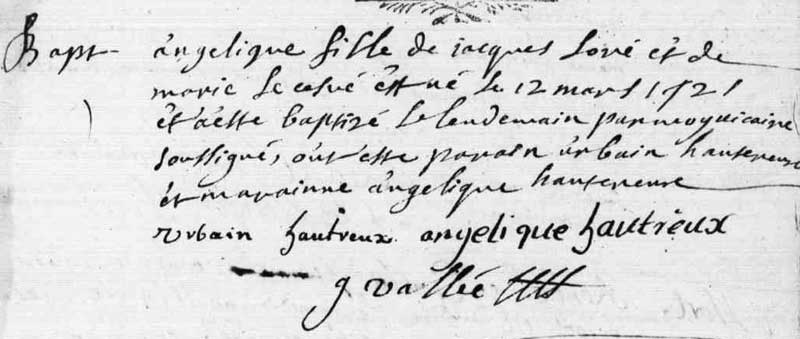 Bapt angelique fille de jacques Loré et de
marie le cesué est né le 12 mars 1721
et a este baptizé le lendemain par moy vicaire
soussigné, ont este parain urbain hautereuse
et marainne angelique hautereuse
Vrbain hautreux angelique hautreux
g vallée